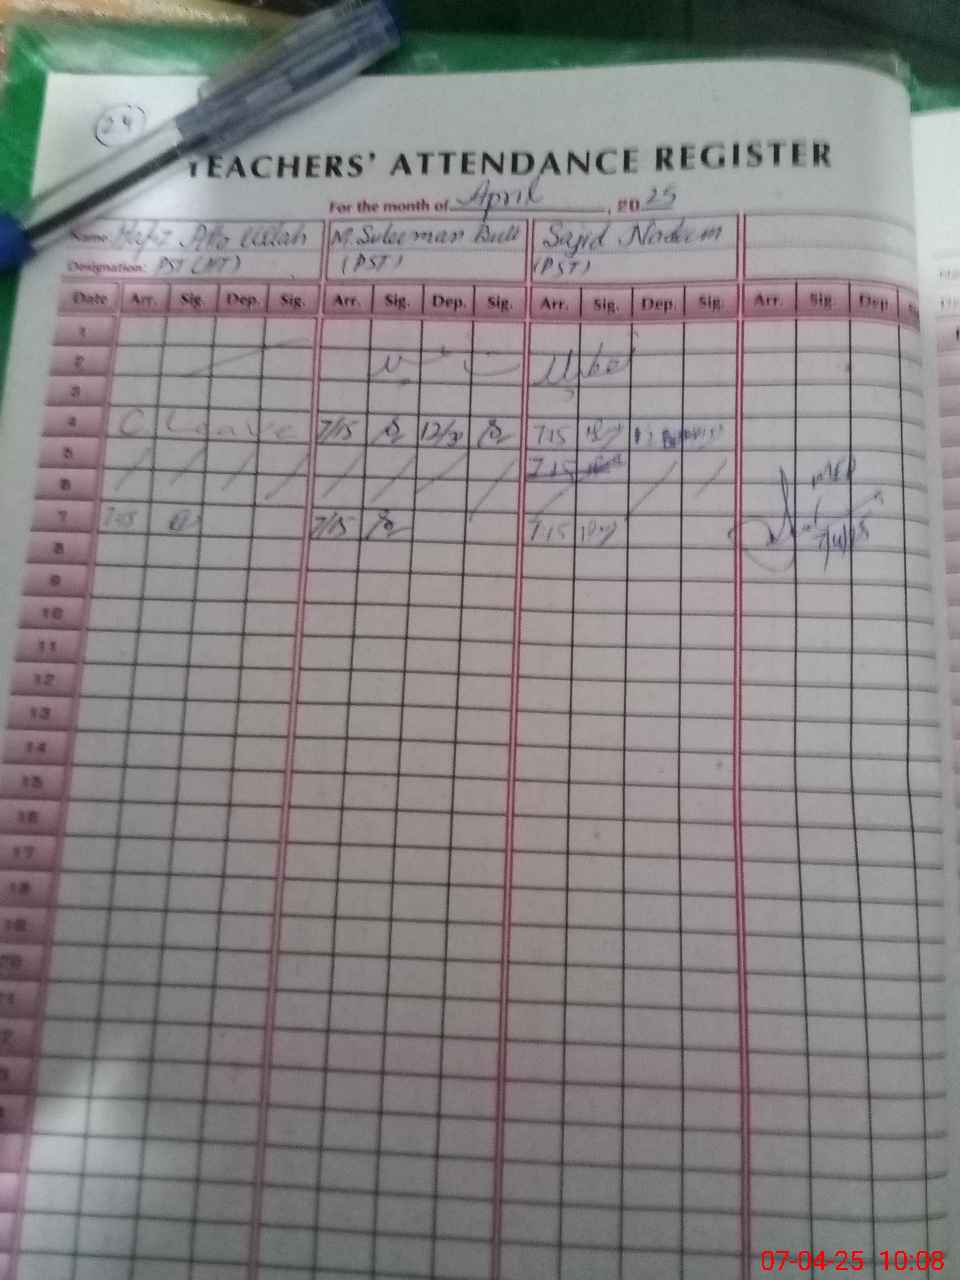 24
TEACHERS' ATTENDANCE REGISTER
For the month of April, 2025
Name: Hafiz Atta Ullah M. Suleman Butt Sajid Nadeem
Designation: PST (HT) (PST) (PST)
Date Arr. Sig. Dep. Sig. Arr. Sig. Dep. Sig. Arr. Sig. Dep. Sig. Arr. Sig. Dep
1
2
3
4 C Leave 7/15 12/30 7:15
5 7:15
6
7 7/15 7:15
8 7/4/25
9
10
11
12
13
14
15
16
17
18
19
07-04-25 10:08